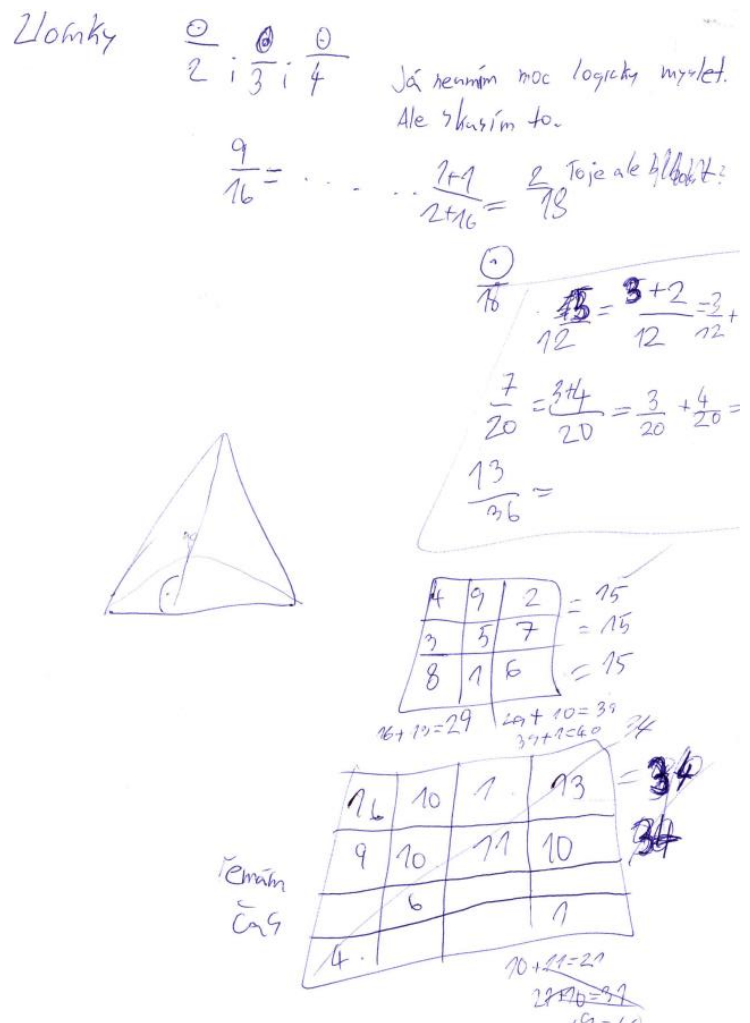 Zlomky
0/2 ; 0/3 ; 0/4
Já neumím moc logicky myslet.
Ale skusím to.
9/16 = . . . . . (1+1)/(2+16) = 2/18 To je ale
/18
/12 = (3+2)/12 = 3/12 +
7/20 = (3+4)/20 = 3/20 + 4/20 =
13/36 =
4 9 2 = 15
3 5 7 = 15
8 1 6 = 15
16+13=29 29+10=39
39+1=40
34
16 10 1 13 = 34
9 10 11 10 34
čas
6 1
4
10+11=21
21+10=31